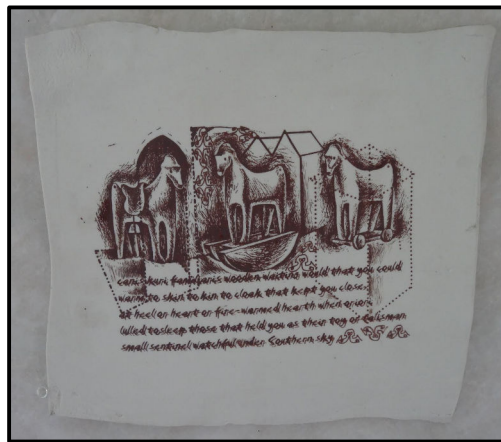 wooden waiting would that you could
warm to skin to kin to cloak that kept you close
at heel on heart or fire-warmed hearth when orion
lulled to sleep those that held you as their toy or talisman
small sentinel watchful under Southern sky